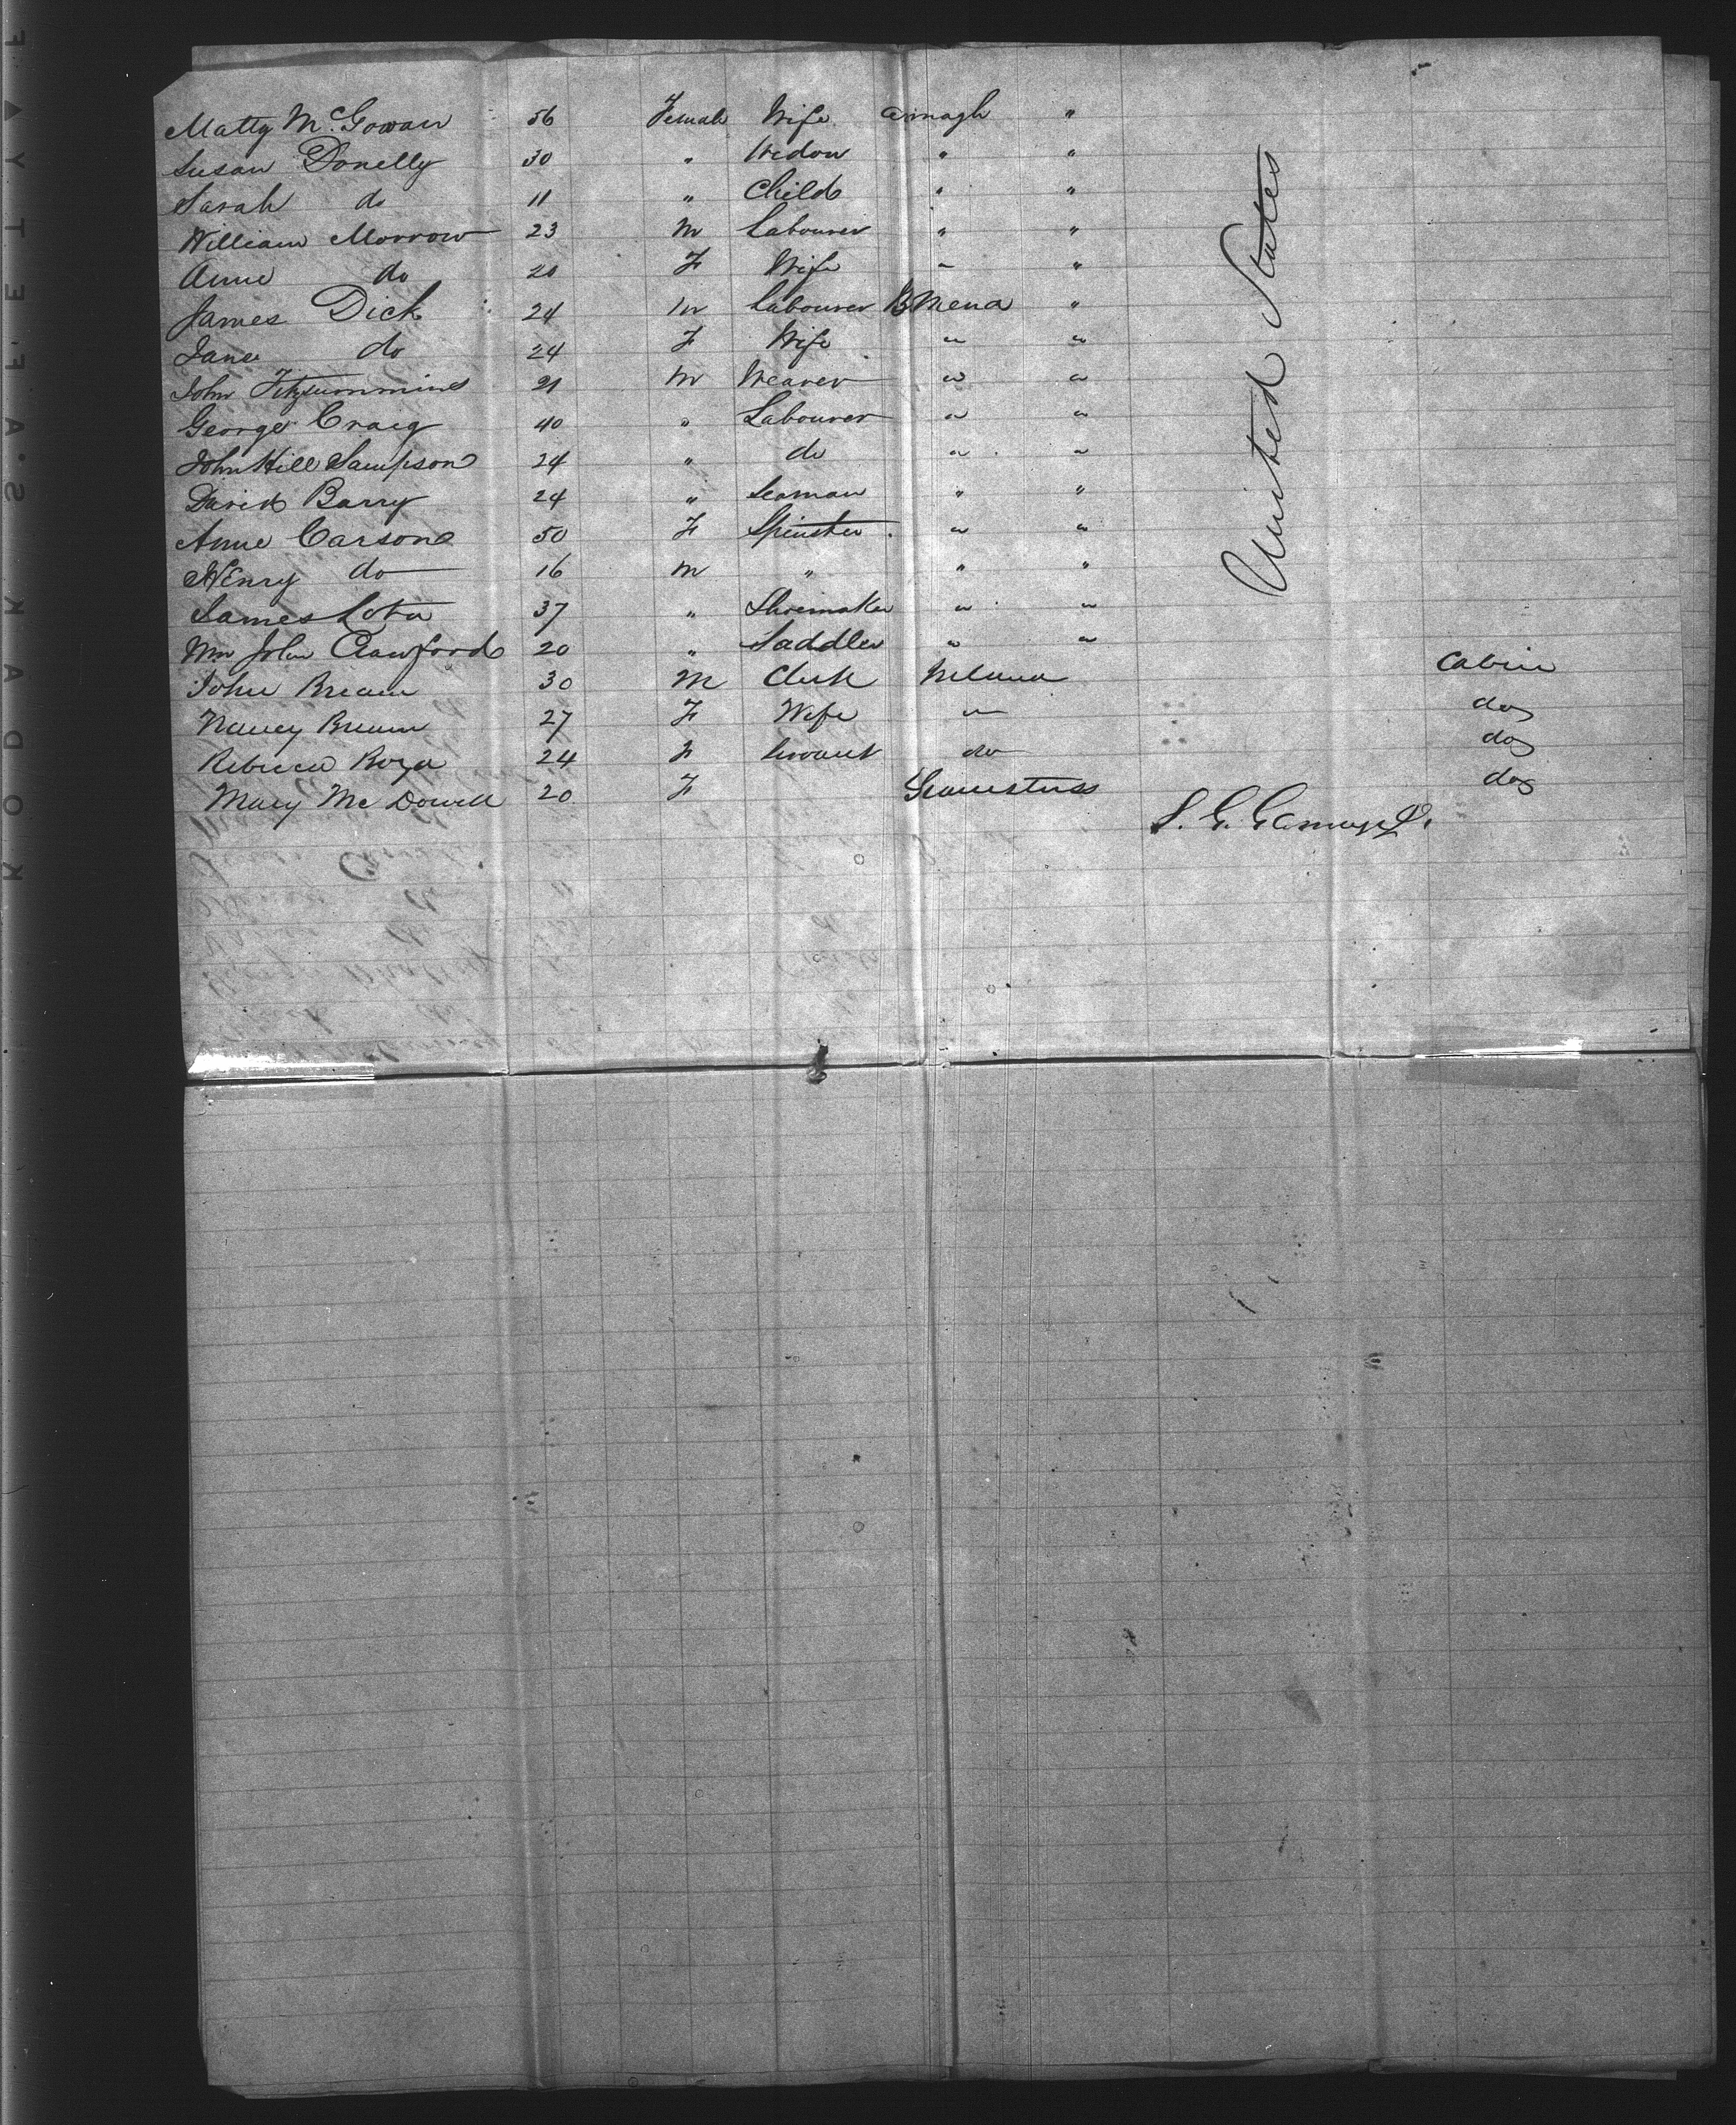 Matty McGowan 56 Female Wife Armagh "
Susan Donelly 30 " Widow " "
Sarah do 11 " Child " "
William Morrow 23 M Labourer " "
Anne do 20 F Wife " "
James Dick 24 M Labourer BMena "
Jane do 24 F Wife " "
John Fitzsummins 21 M Weaver " "
George Craig 40 " Labourer " "
John Hill Sampson 24 " do " "
David Barry 24 " Seaman " "
Anne Carson 50 F Spinster " "
Henry do 16 M " " "
James 37 " Shoemaker " "
Wm John Crawford 20 " Saddler " "
John 30 M Clerk Cabin
Nancy 27 F Wife " do
Rebecca 24 F Servant do do
Mary McDowell 20 F do
United States
S. G.
KODAK · SAFETY